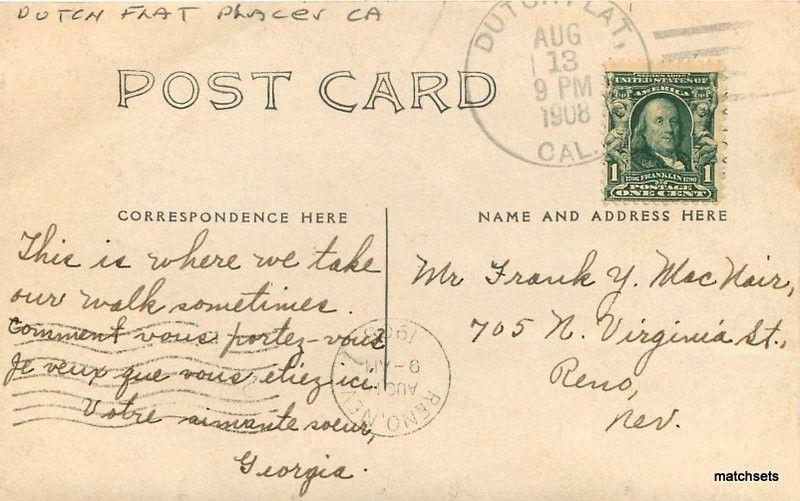 DUTCH FLAT PLACER CA
DUTCH FLAT,
AUG
13
9 PM
1908
CAL.
POST CARD
SERIES 1902
UNITED STATES OF
AMERICA
1 1
1706 FRANKLIN 1790
POSTAGE
ONE CENT
CORRESPONDENCE HERE
NAME AND ADDRESS HERE
This is where we take
our walk sometimes.
Comment vous portez-vous
Je veux que vous étiez ici.
Votre aimante soeur,
Georgia.
Mr Frank Y. MacNair,
705 N. Virginia St.,
Reno,
Nev.
RENO, NEV.
AUG
9-AM
1908
matchsets